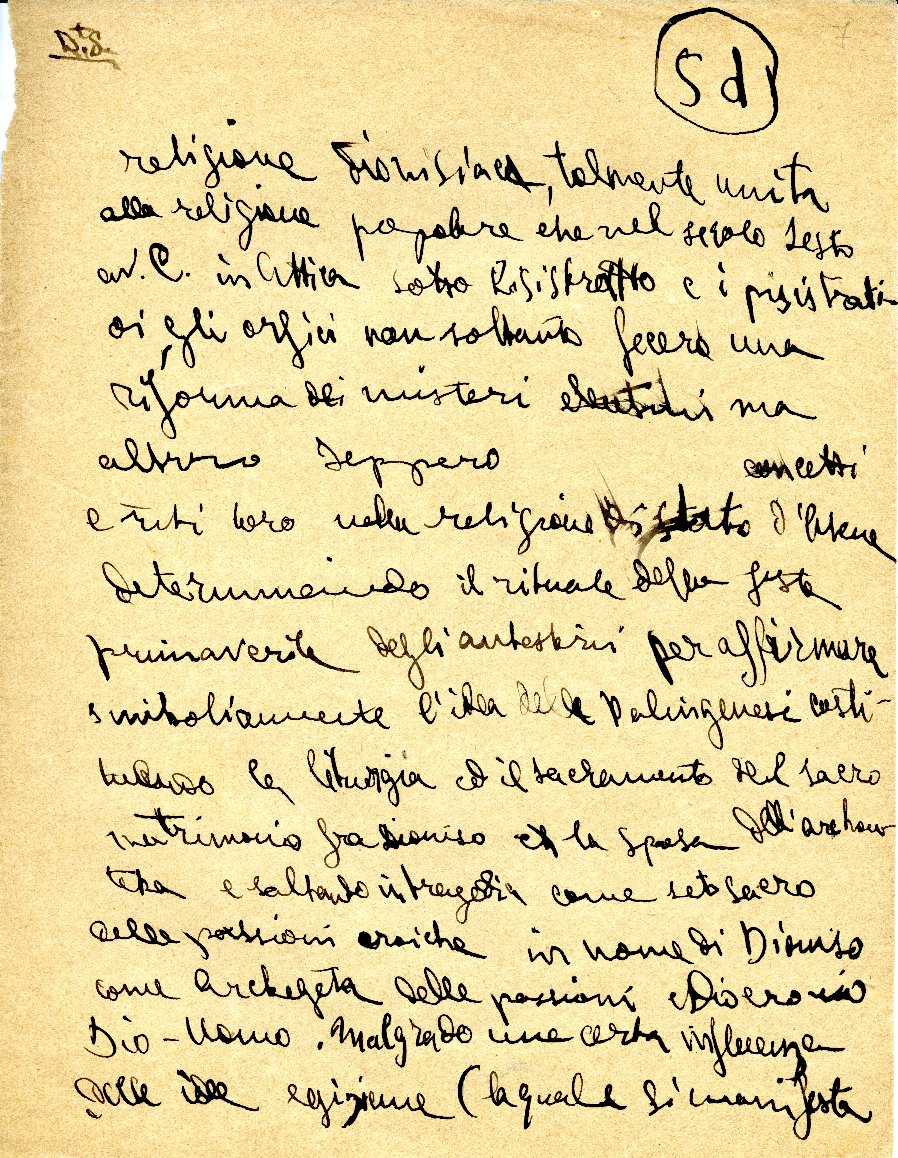 D.S.
5d
7
religione dionisiaca, talmente unita
alla religione popolare che nel secolo sesto
av. C. in Attica sotto Pisistrato e i pisistrati-
di gli orfici non soltanto fecero una
riforma dei misteri eleusini ma
altresì seppero concetti
e riti loro nella religione di stato d'Atene
determinando il rituale della festa
primaverile degli antesterii per affirmare
simboliamente l'idea della palingenesi costi-
tuendo la liturgia ed il sacramento del sacro
matrimonio fra Dioniso ed la sposa dell'archon-
te e soltando in tragedia come sacro
delle passioni eroiche in nome di Dioniso
come Archegeta delle passioni e Dio eroico
Dio-Uomo. Malgrado una certa influenza
delle idee egiziane (la quale si manifesta